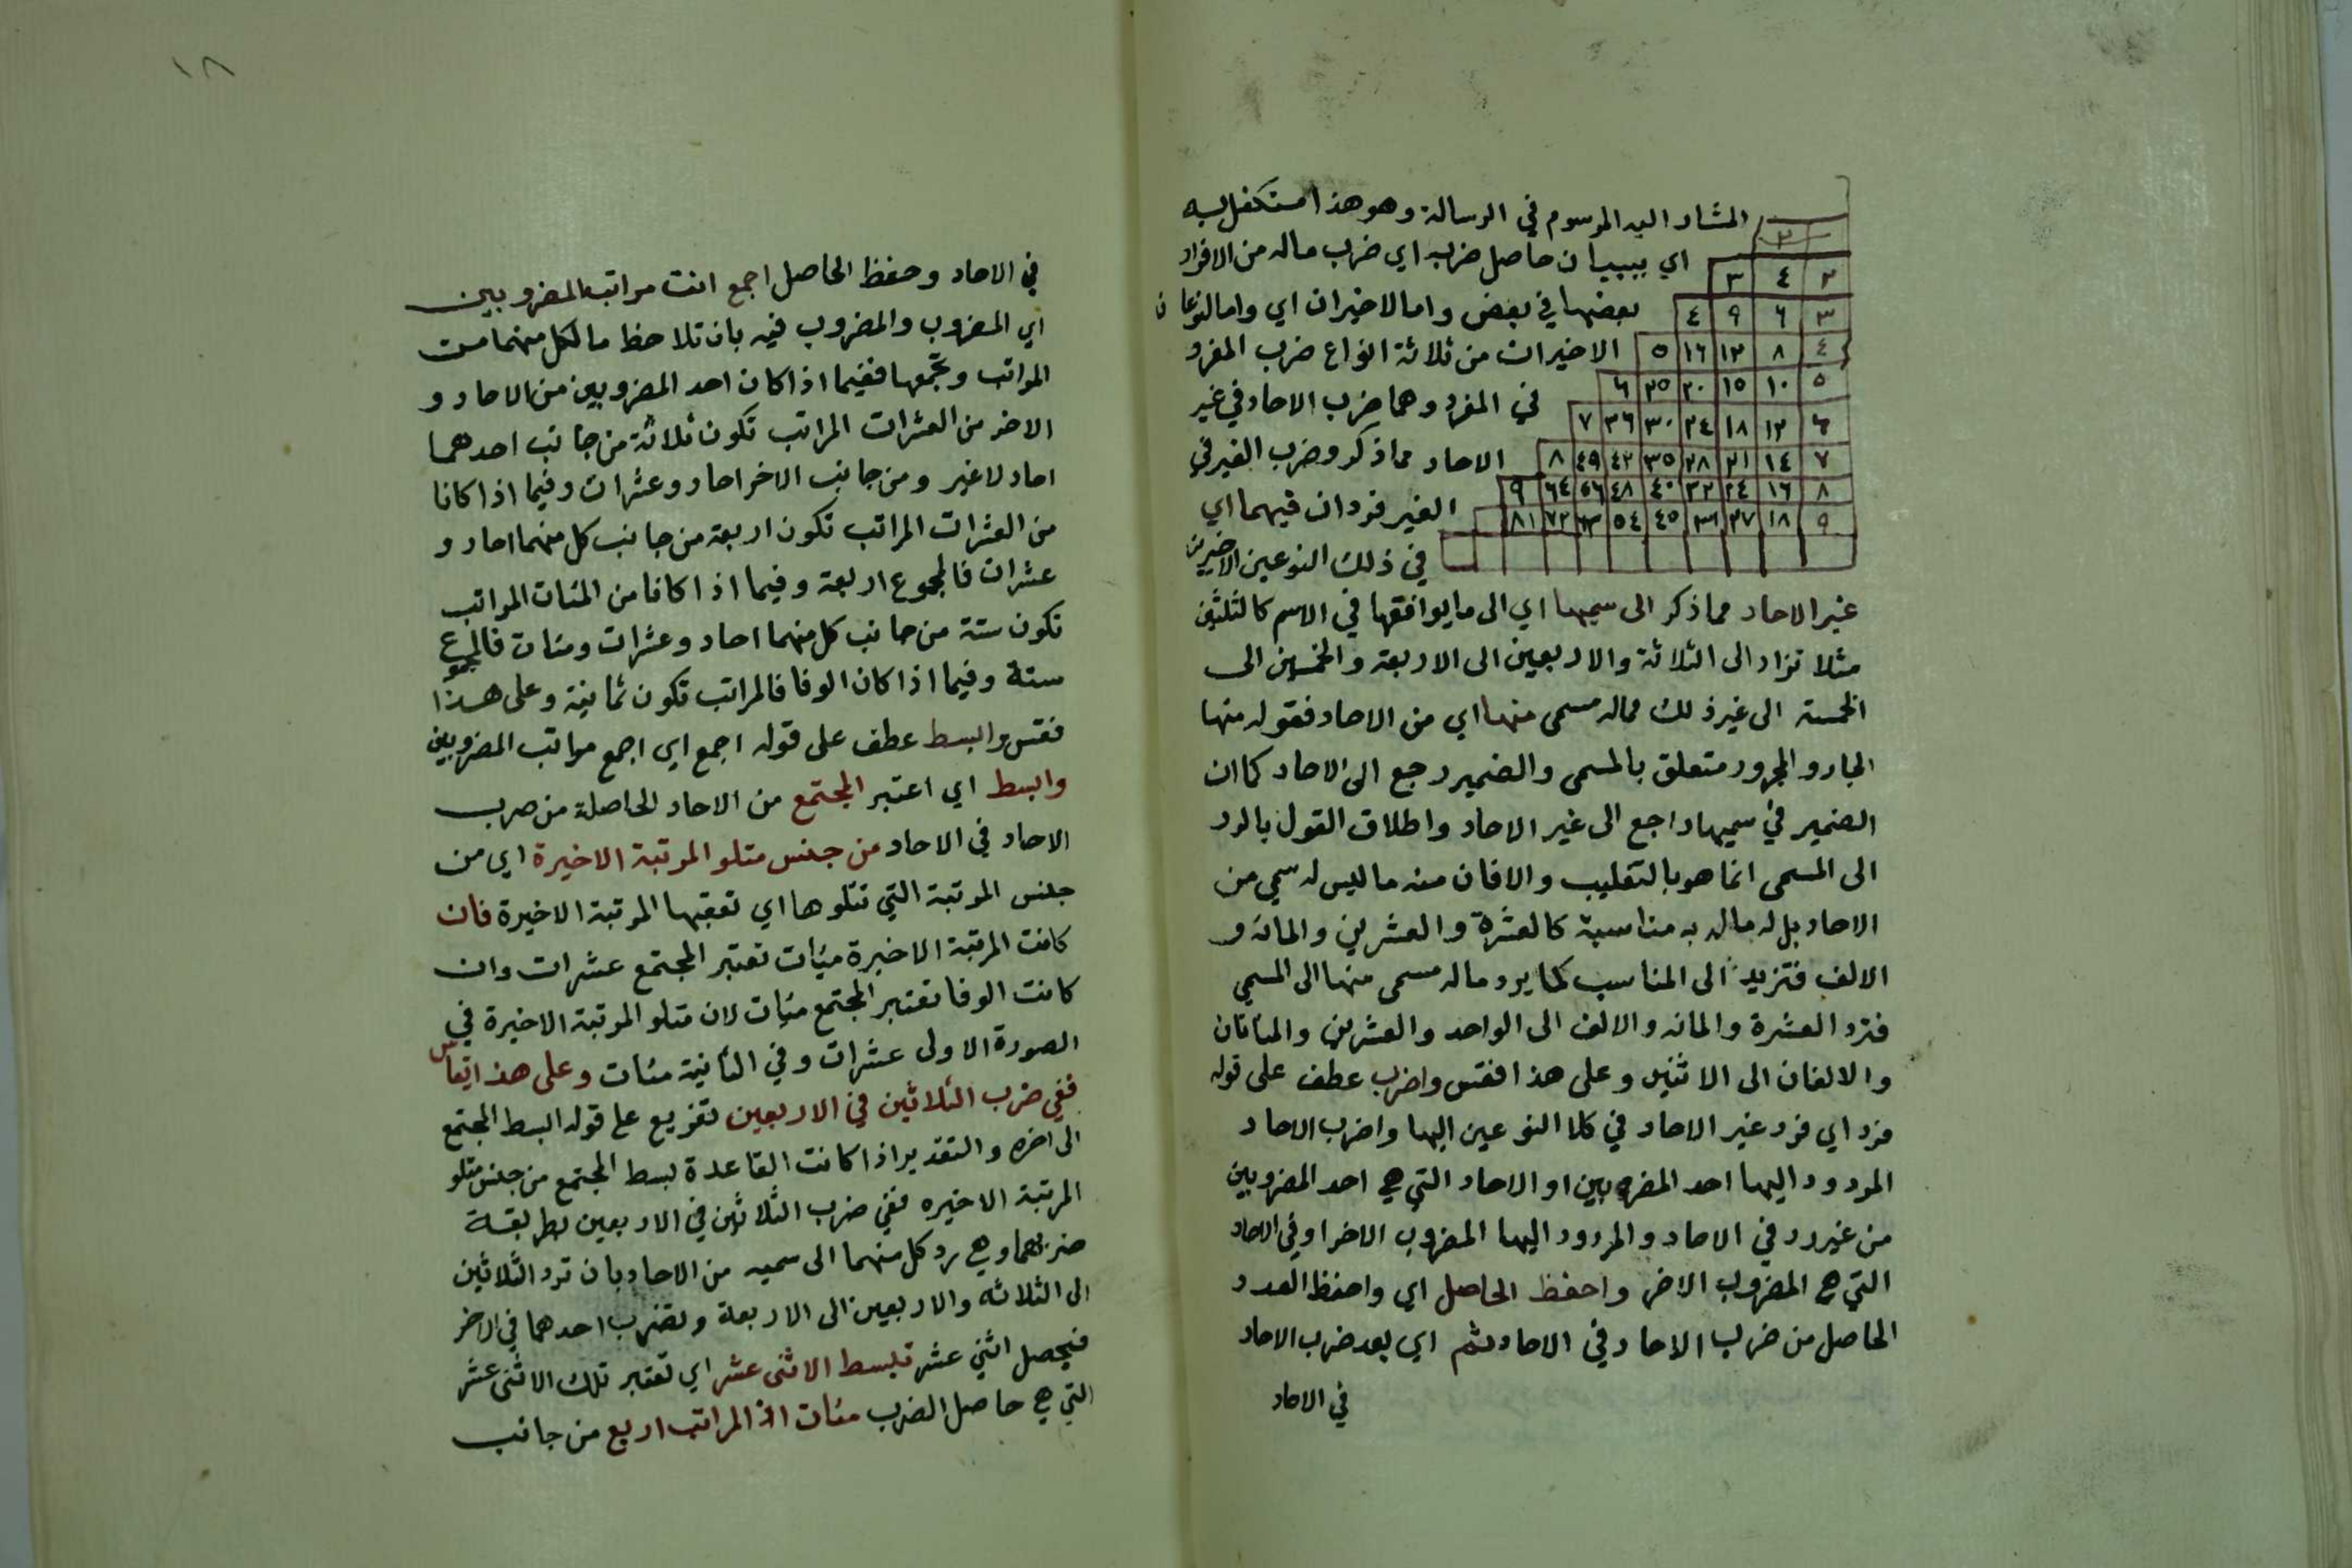 المشار اليه المرسوم في الرسالة وهو هذا متكفل به
٢
اي ببيان حاصل ضربه اي ضرب ماله من الافراد
٢ ٤ ٣
بعضها في بعض واما الاخيران اي واما النوعان
٣ ٦ ٩ ٤
الاخيران من ثلاثة انواع ضرب المفرد
٤ ٨ ١٢ ١٦ ٥
٥ ١٠ ١٥ ٢٠ ٢٥ ٦
في المفرد وهما ضرب الاحاد في غير
٦ ١٢ ١٨ ٢٤ ٣٠ ٣٦ ٧
الاحاد مما ذكر وضرب الغير في
٧ ١٤ ٢١ ٢٨ ٣٥ ٤٢ ٤٩ ٨
٨ ١٦ ٢٤ ٣٢ ٤٠ ٤٨ ٥٦ ٦٤ ٩
الغير فردان فيهما اي
٩ ١٨ ٢٧ ٣٦ ٤٥ ٥٤ ٦٣ ٧٢ ٨١
في ذلك النوعين الاخيرين
غير الاحاد مما ذكر الى سميها اي الى ما يوافقها في الاسم كالثلثين
مثلا تراد الى الثلاثة والاربعين الى الاربعة والخمسين الى
الخمسة الى غير ذلك مماله مسمى منها اي من الاحاد فقوله منها
الجار والمجرور متعلق بالمسمى والضمير رجع الى الاحاد كما ان
الضمير في سميها راجع الى غير الاحاد واطلاق القول بالرد
الى المسمى انما هو بالتغليب والا فان منه ما ليس له سمي من
الاحاد بل له ماله به مناسبة كالعشرة والعشرين والمائة و
الالف فتزيد الى المناسب كما يرد ماله مسمى منها الى المسمى
فترد العشرة والمائه والالف الى الواحد والعشرين والمئاتان
والالفان الى الاثنين وعلى هذا فقس واضرب عطف على قوله
فرد اي فرد غير الاحاد في كلا النوعين اليها واضرب الاحاد
المردود اليها احد المضروبين او الاحاد التي هي احد المضروبين
من غير رد في الاحاد والمردود اليها المضروب الاخر او في الاحاد
التي هي المضروب الاخر واحفظ الحاصل اي واحفظ العدد
الحاصل من ضرب الاحاد في الاحاد ثم اي بعد ضرب الاحاد
في الاحاد
١٨
في الاحاد وحفظ الحاصل اجمع انت مراتب المضروبين
اي المضروب والمضروب فيه بان تلاحظ ما لكل منهما من
المراتب وتجمعها ففيما اذا كان احد المضروبين من الاحاد و
الاخر من العشرات المراتب تكون ثلاثة من جانب احدهما
احاد لا غير ومن جانب الاخر احاد وعشرات وفيما اذا كانا
من العشرات المراتب تكون اربعة من جانب كل منهما احاد و
عشرات فالمجموع اربعة وفيما اذا كانا من المئات المراتب
تكون ستة من جانب كل منهما احاد وعشرات ومئات فالمجموع
ستة وفيما اذا كان الوفا فالمراتب تكون ثمانية وعلى هذا
فقس والبسط عطف على قوله اجمع اي اجمع مراتب المضروبين
والبسط اي اعتبر المجتمع من الاحاد الحاصلة من ضرب
الاحاد في الاحاد من جنس متلو المرتبة الاخيرة اي من
جنس المرتبة التي تتلوها اي تعقبها المرتبة الاخيرة فان
كانت المرتبة الاخيرة مئات تعتبر المجتمع عشرات وان
كانت الوفا تعتبر المجتمع مئات لان متلو المرتبة الاخيرة في
الصورة الاولى عشرات وفي الثانية مئات وعلى هذا القياس
ففي ضرب الثلاثين في الاربعين تفريع على قوله البسط المجتمع
الى اخره والتقدير اذا كانت القاعدة بسط المجتمع من جنس متلو
المرتبة الاخيره ففي ضرب الثلاثين في الاربعين بطريقة
ضربهما وهي رد كل منهما الى سميه من الاحاد بان ترد الثلاثين
الى الثلاثه والاربعين الى الاربعة وتضرب احدهما في الاخر
فيحصل اثني عشر تبسط الاثنى عشر اي تعتبر تلك الاثنى عشر
التي هي حاصل الضرب مئات اذ المراتب اربع من جانب